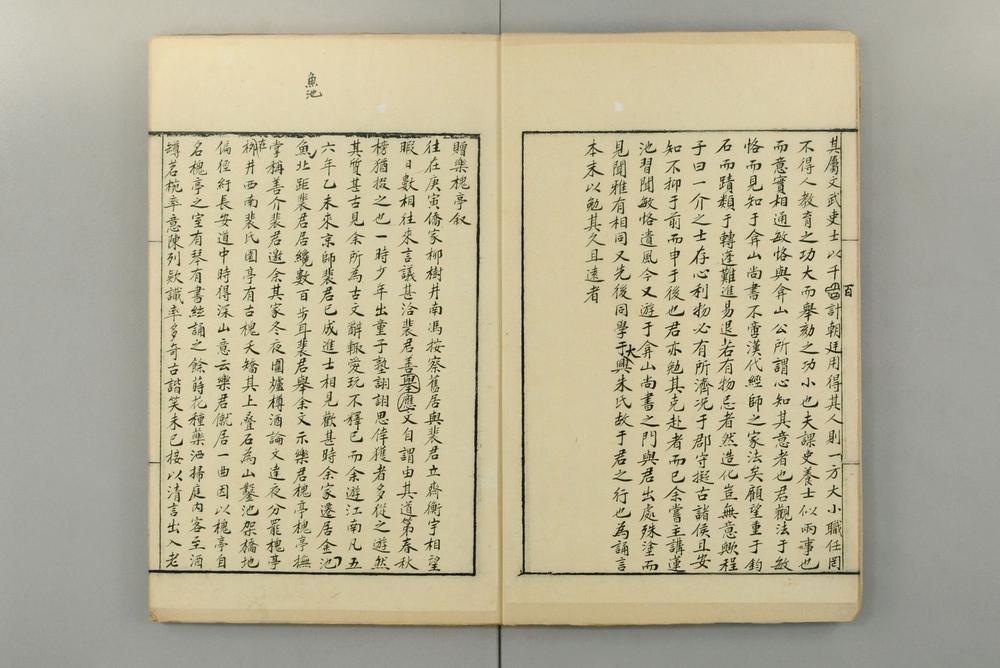 其屬文武吏士以千百計朝廷用得其人則一方大小職任罔
百
不得人教育之功大而舉劾之功小也夫課吏養士似兩事也
而意實相通敏恪與弇山公所謂心知其意者也君觀法于敏
恪而見知于弇山尚書不啻漢代經師之家法矣顧望重于鈞
石而蹟類于轉蓬難進易退若有物忌者然造化豈無意歟程
子曰一介之士存心利物必有所濟况于郡守擬古諸侯且安
知不抑于前而申于後也君亦勉其克赴者而已余嘗主講蓮
池習聞敏恪遺風今又遊于弇山尚書之門與君出處殊塗而
見聞雅有相同又先後同學于大興朱氏故于君之行也為誦言
本末以勉其久且遠者
魚池
贈樂槐亭叙
往在庚寅僑家柳樹井南馮按察舊居與裴君立齋衡宇相望
暇日數相往來言議甚洽裴君善舉應文自謂由其道第春秋
榜猶掇之也一時少年出童子塾詡詡思倖獲者多從之遊然
其質甚古見余所為古文辭輒愛玩不釋已而余遊江南凡五
六年乙未來京師裴君已成進士相見歡甚時余家遷居金池
魚北距裴君居纔數百步耳裴君舉余文示樂君槐亭槐亭撫
掌稱善介裴君邀余其家冬夜圍爐樽酒論文達夜分罷槐亭
在柳井西南裴氏園亭有古槐夭矯其上疊石為山鑿池架橋地
偏徑紆長安道中時得深山意云樂君僦居一曲因以槐亭自
名槐亭之室有琴有書經誦之餘蒔花種藥洒掃庭内客至酒
罇茗椀率意陳列欵識率多奇古諧笑未已接以清言出入老